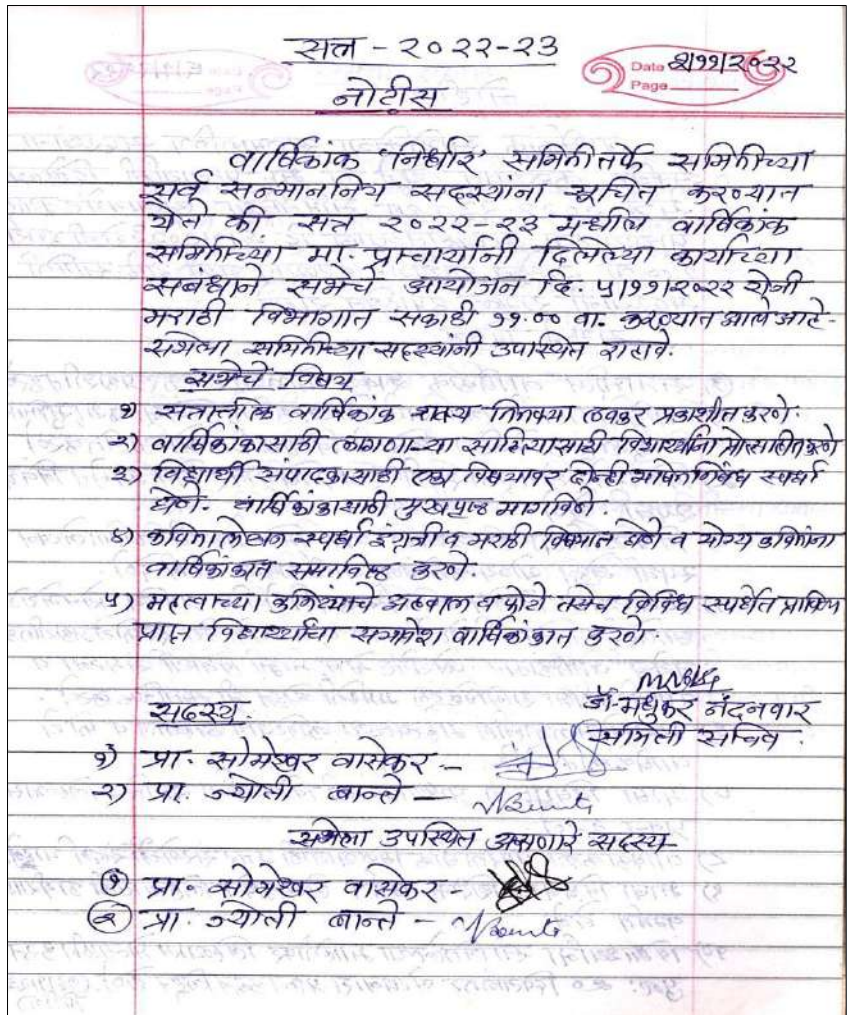 सत्र - २०२२-२३
Date २/११/२०२२
Page
नोटीस
वार्षिकांक 'निर्धार' समितीतर्फे समितीच्या
सर्व सन्माननिय सदस्यांना सूचित करण्यात
येते की सत्र २०२२-२३ मधील वार्षिकांक
समितीच्या मा. प्राचार्यांनी दिलेल्या कार्याच्या
संबंधाने सभेचे आयोजन दि. ५/११/२०२२ रोजी
मराठी विभागात सकाळी ११.०० वा. करण्यात आले आहे.
सभेला समितीच्या सदस्यांनी उपस्थित राहावे.
सभेचे विषय
१) वार्षिकांक लवकर प्रकाशीत करणे.
२) वार्षिकांकासाठी लागणाऱ्या साहित्यासाठी विद्यार्थ्यांना प्रोत्साहित करणे
३) विद्यार्थी संपादकासाठी विषयावर दोन्ही भाषेत निबंध स्पर्धा
घेणे. वार्षिकांकासाठी मुखपृष्ठ मागविणे
४) कविता लेखन स्पर्धा इंग्रजी व मराठी विषयात घेणे व योग्य कवितांना
वार्षिकांकात समाविष्ठ करणे.
५) महत्वाच्या अहवाल व फोटो तसेच विविध स्पर्धेत प्राविण्य
प्राप्त विद्यार्थ्यांचा समावेश वार्षिकांकात करणे.
डॉ. मधुकर नंदनवार
सदस्य
समिती सचिव.
१) प्रा. सोमेश्वर वासेकर -
२) प्रा. ज्योती बान्ते -
सभेला उपस्थित असणारे सदस्य
१) प्रा. सोमेश्वर वासेकर -
२) प्रा. ज्योती बान्ते -